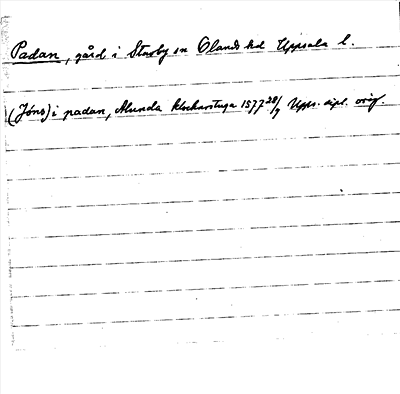 Padan, gård i Stavby sn Olands hd Uppsala l.
(Jöns) i padan, Alunda klockarstuga 1577 28/9 Upps. dipl. orig.